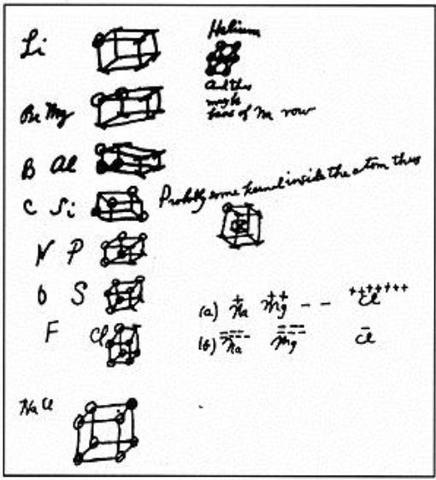 Li
Helium
And this
might
base of in row
Be Mg
B Al
C Si
Probably some kernel inside the atom thus
N P
O S
F Cl
(a) Na Mg - - Cl
+ ++ +++++++
(b) Na Mg Cl
NaCl